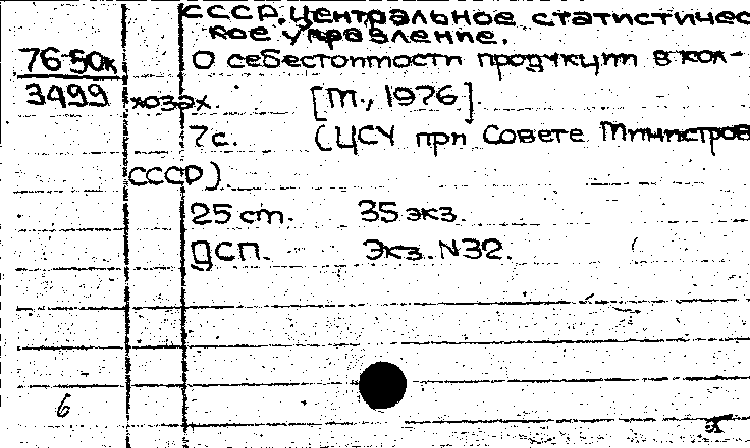 СССР. Центральное статистичес
кое управление.
76-50к О себестоимости продукции в кол-
3499 хозах. [М., 1976].
7с. (ЦСУ при Совете Министров
СССР).
25 см. 35 экз.
ДСП. Экз. N32.
6